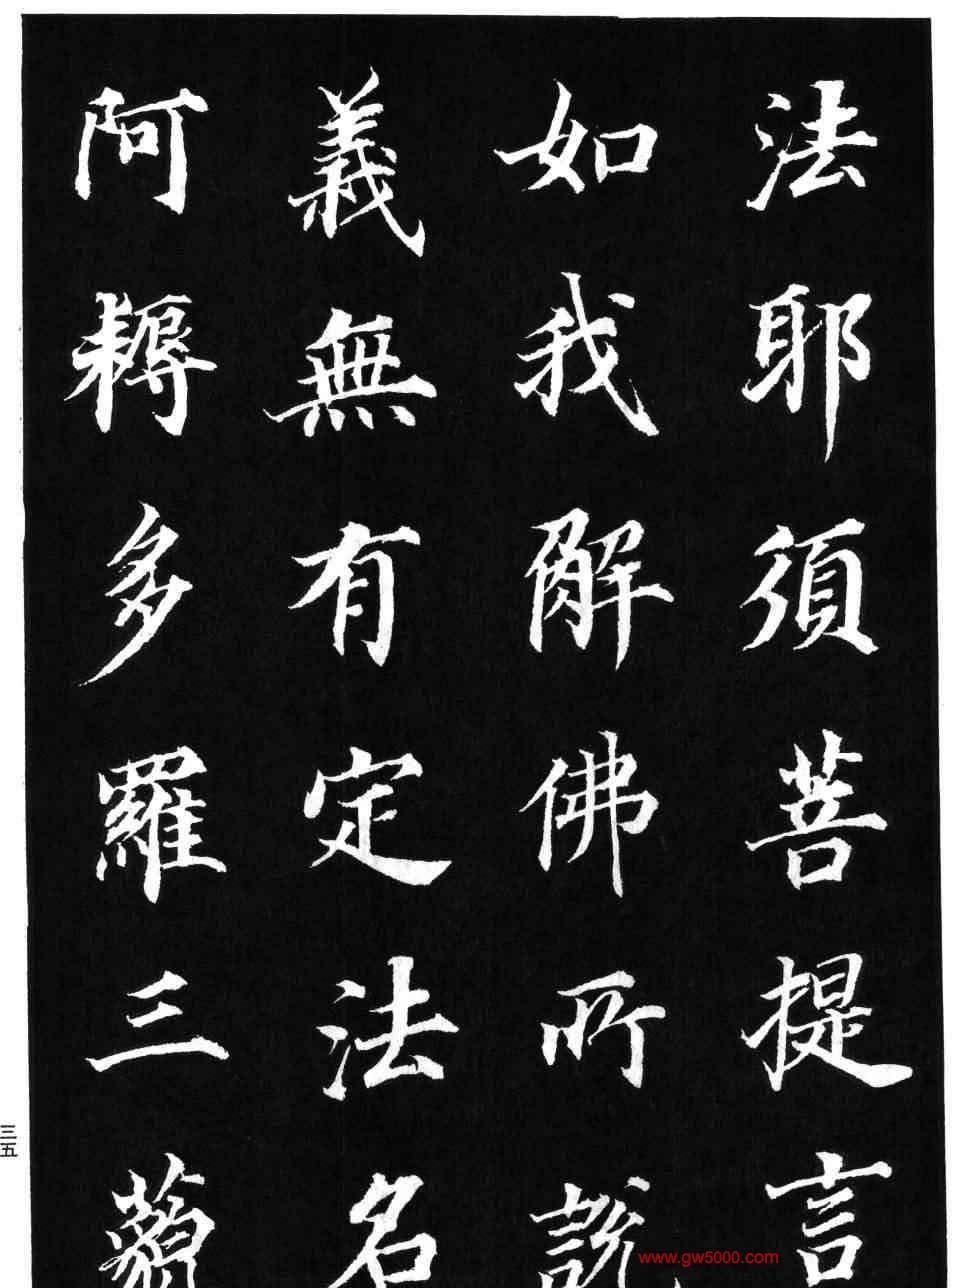 法耶須菩提言
如我解佛所說
義無有定法名
阿耨多羅三藐
三五
www.gw5000.com